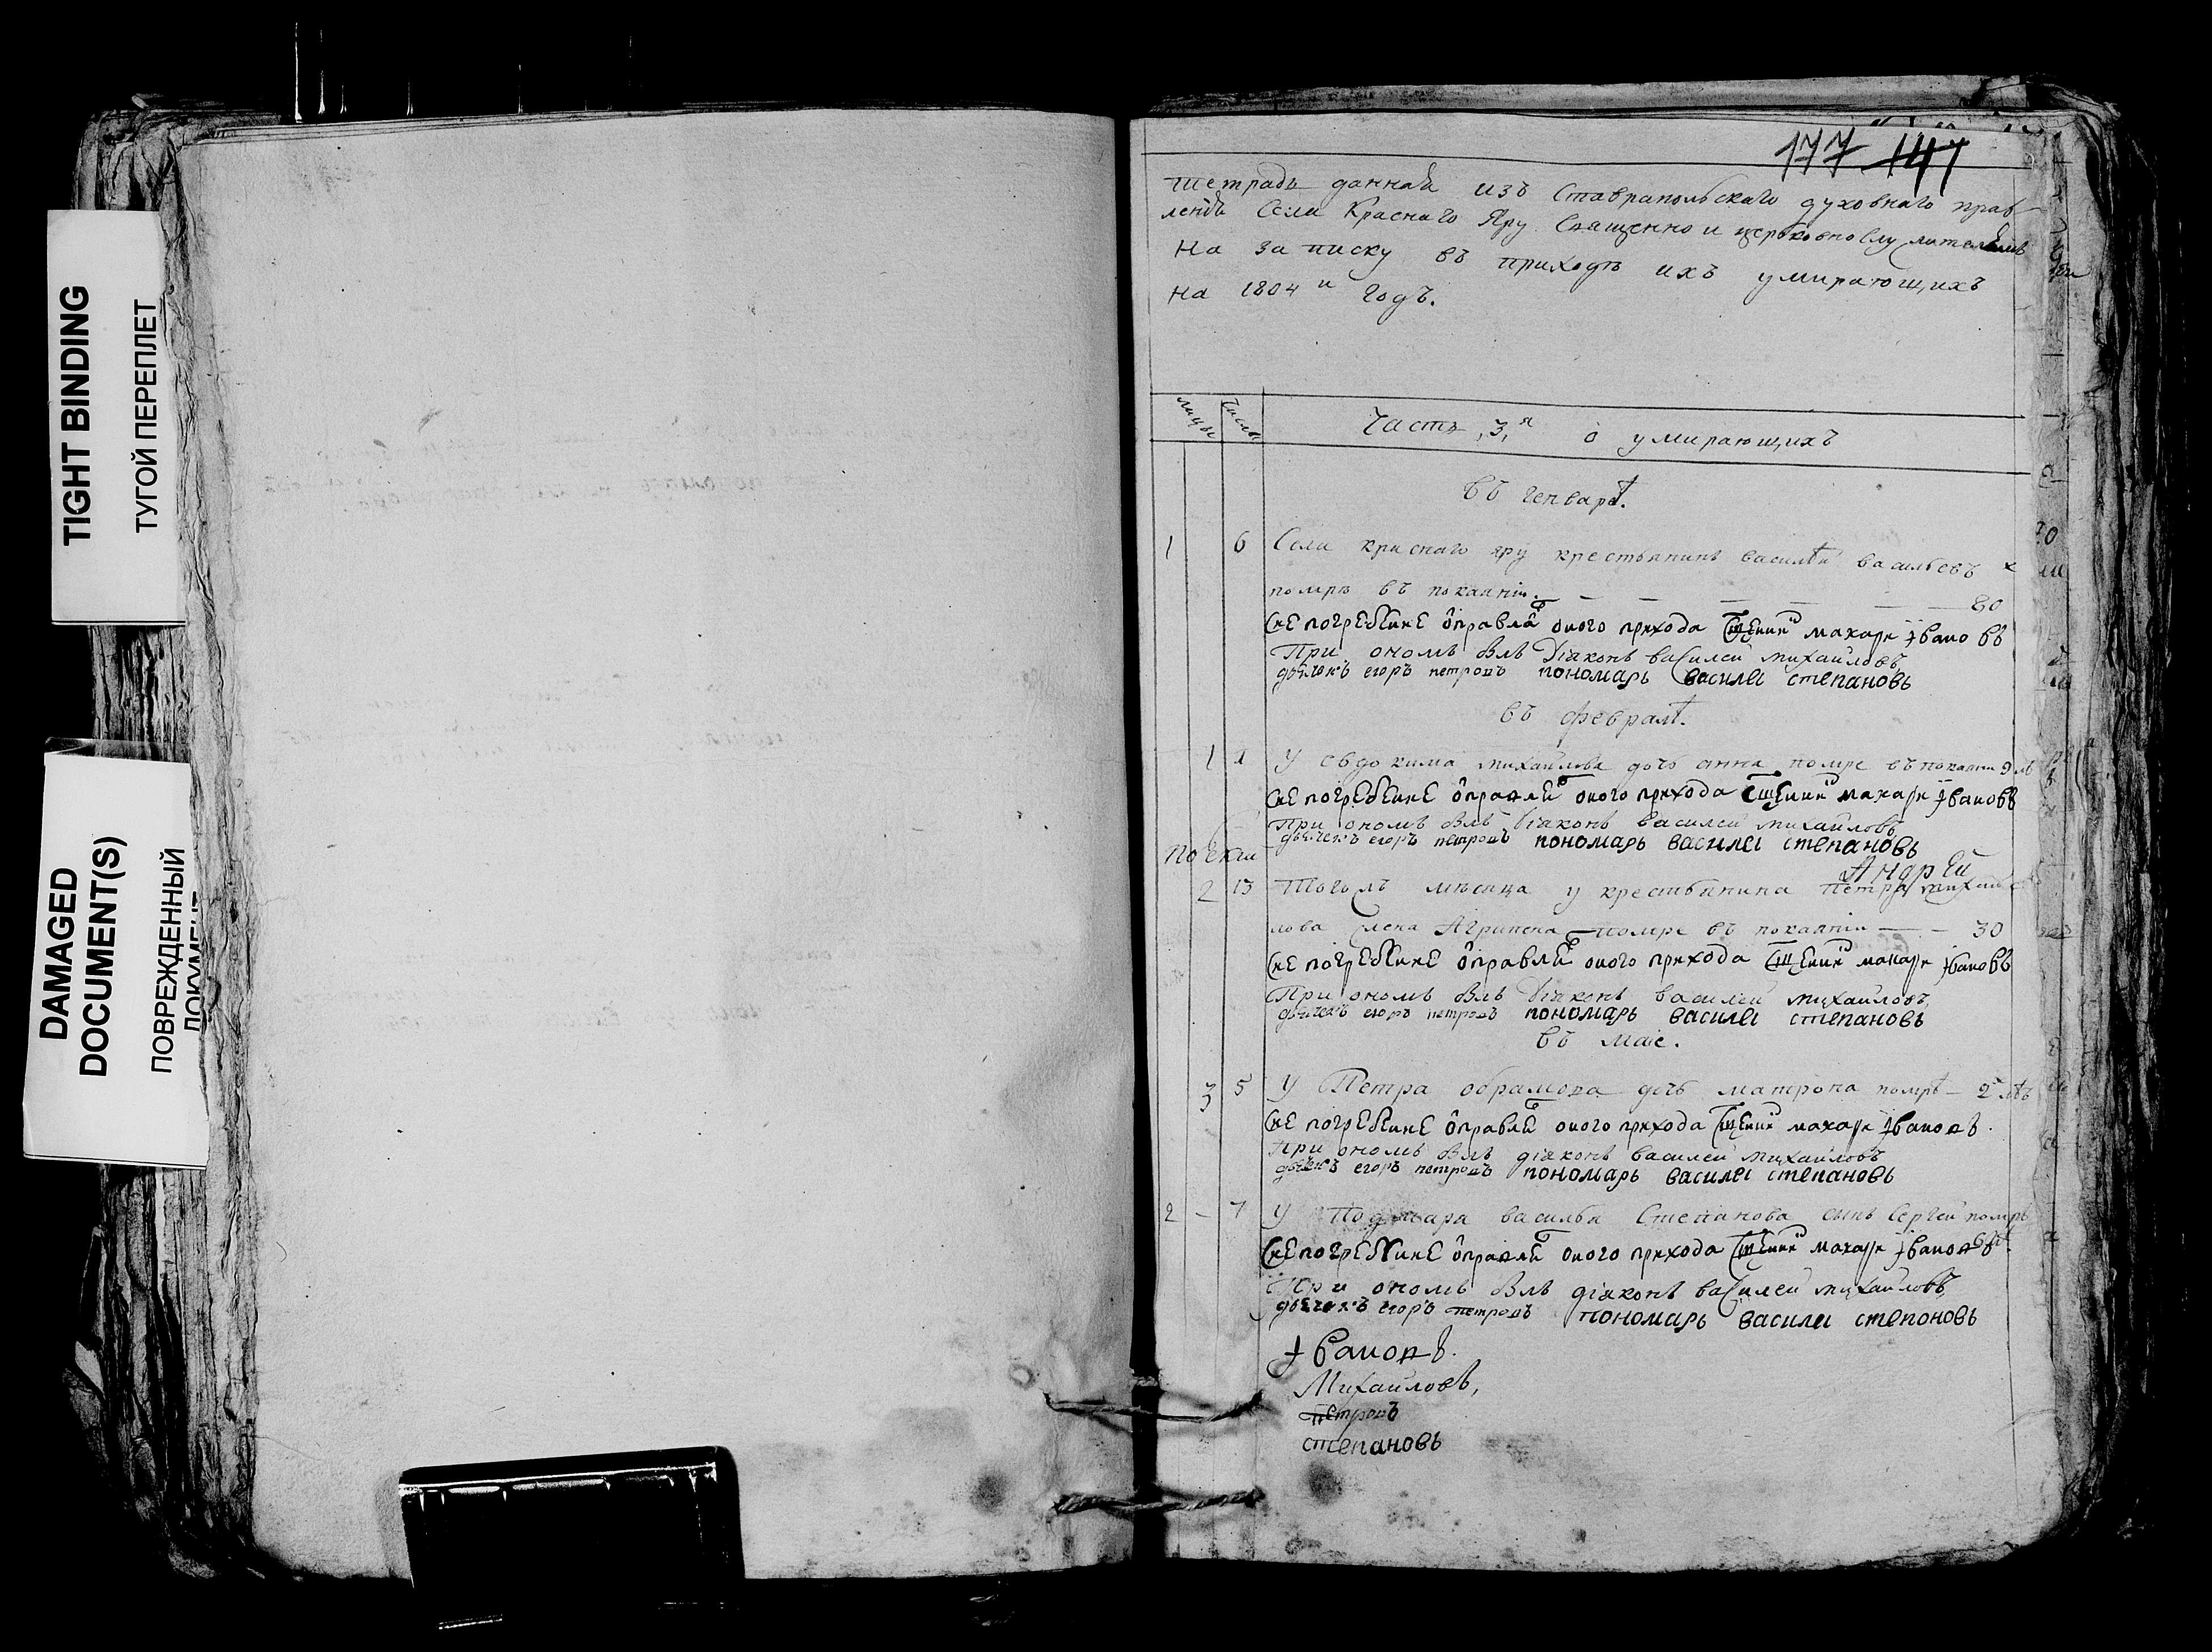 TIGHT BINDING
ТУГОЙ ПЕРЕПЛЕТ
DAMAGED
DOCUMENT(S)
ПОВРЕЖДЕННЫЙ
ДОКУМЕНТ
177 147
тетрадь данная изъ Ставрапольскаго духовнаго прав
ления Села Краснаго Яру Священно и церковнослужителямъ
на записку въ приходѣ ихъ умирающихъ
на 1804 и годъ.
числы
Часть ,3,я о умирающихъ
въ генварѣ.
1 6 Села краснаго яру крестьянинъ василѣй васильевъ
помре въ покаянiи. — 80
сие погребение ѡправлѧ оного прихода Сщеник макари Iвановъ
При ономъ былъ дiаконъ василей михаиловъ
дьячекъ егоръ петровъ пономарь василеи степановъ
въ февралѣ.
1 1 У евдокима михаилова дочь анна помре въ покаянии 9 лѣ
сие погребение ѡправлѧ оного прихода Сщеник макари Iвановъ
При ономъ былъ дiаконъ василей михаиловъ
дьячекъ егоръ петровъ пономарь василеи степановъ
Андрѣй
2 13 Тогожъ месяца у крестьянина петра михаи
лова жена Агрипена помре въ покаянiи — 30
сие погребение ѡправлѧ оного прихода Сщеник макари Iвановъ
При ономъ былъ дiаконъ василей михаиловъ
дьячекъ егоръ петровъ пономарь василеи степановъ
въ маiе.
3 5 У Петра обрамова дочь матрона помрѣ — 2 лѣтъ
сие погребение ѡправлѧ оного прихода Сщеник макари Iвановъ.
При ономъ былъ дiаконъ василей михаиловъ
дьячекъ егоръ петровъ пономарь василеи степановъ
2 - 7 У василья Степанова сынъ Сергей помръ
сие погребение ѡправлѧ оного прихода Сщеник макари Iвановъ
При ономъ былъ дiаконъ василей михаиловъ
дьячекъ егоръ петровъ пономарь василеи степоновъ
Iвановъ.
Михаиловъ,
петровъ
степановъ